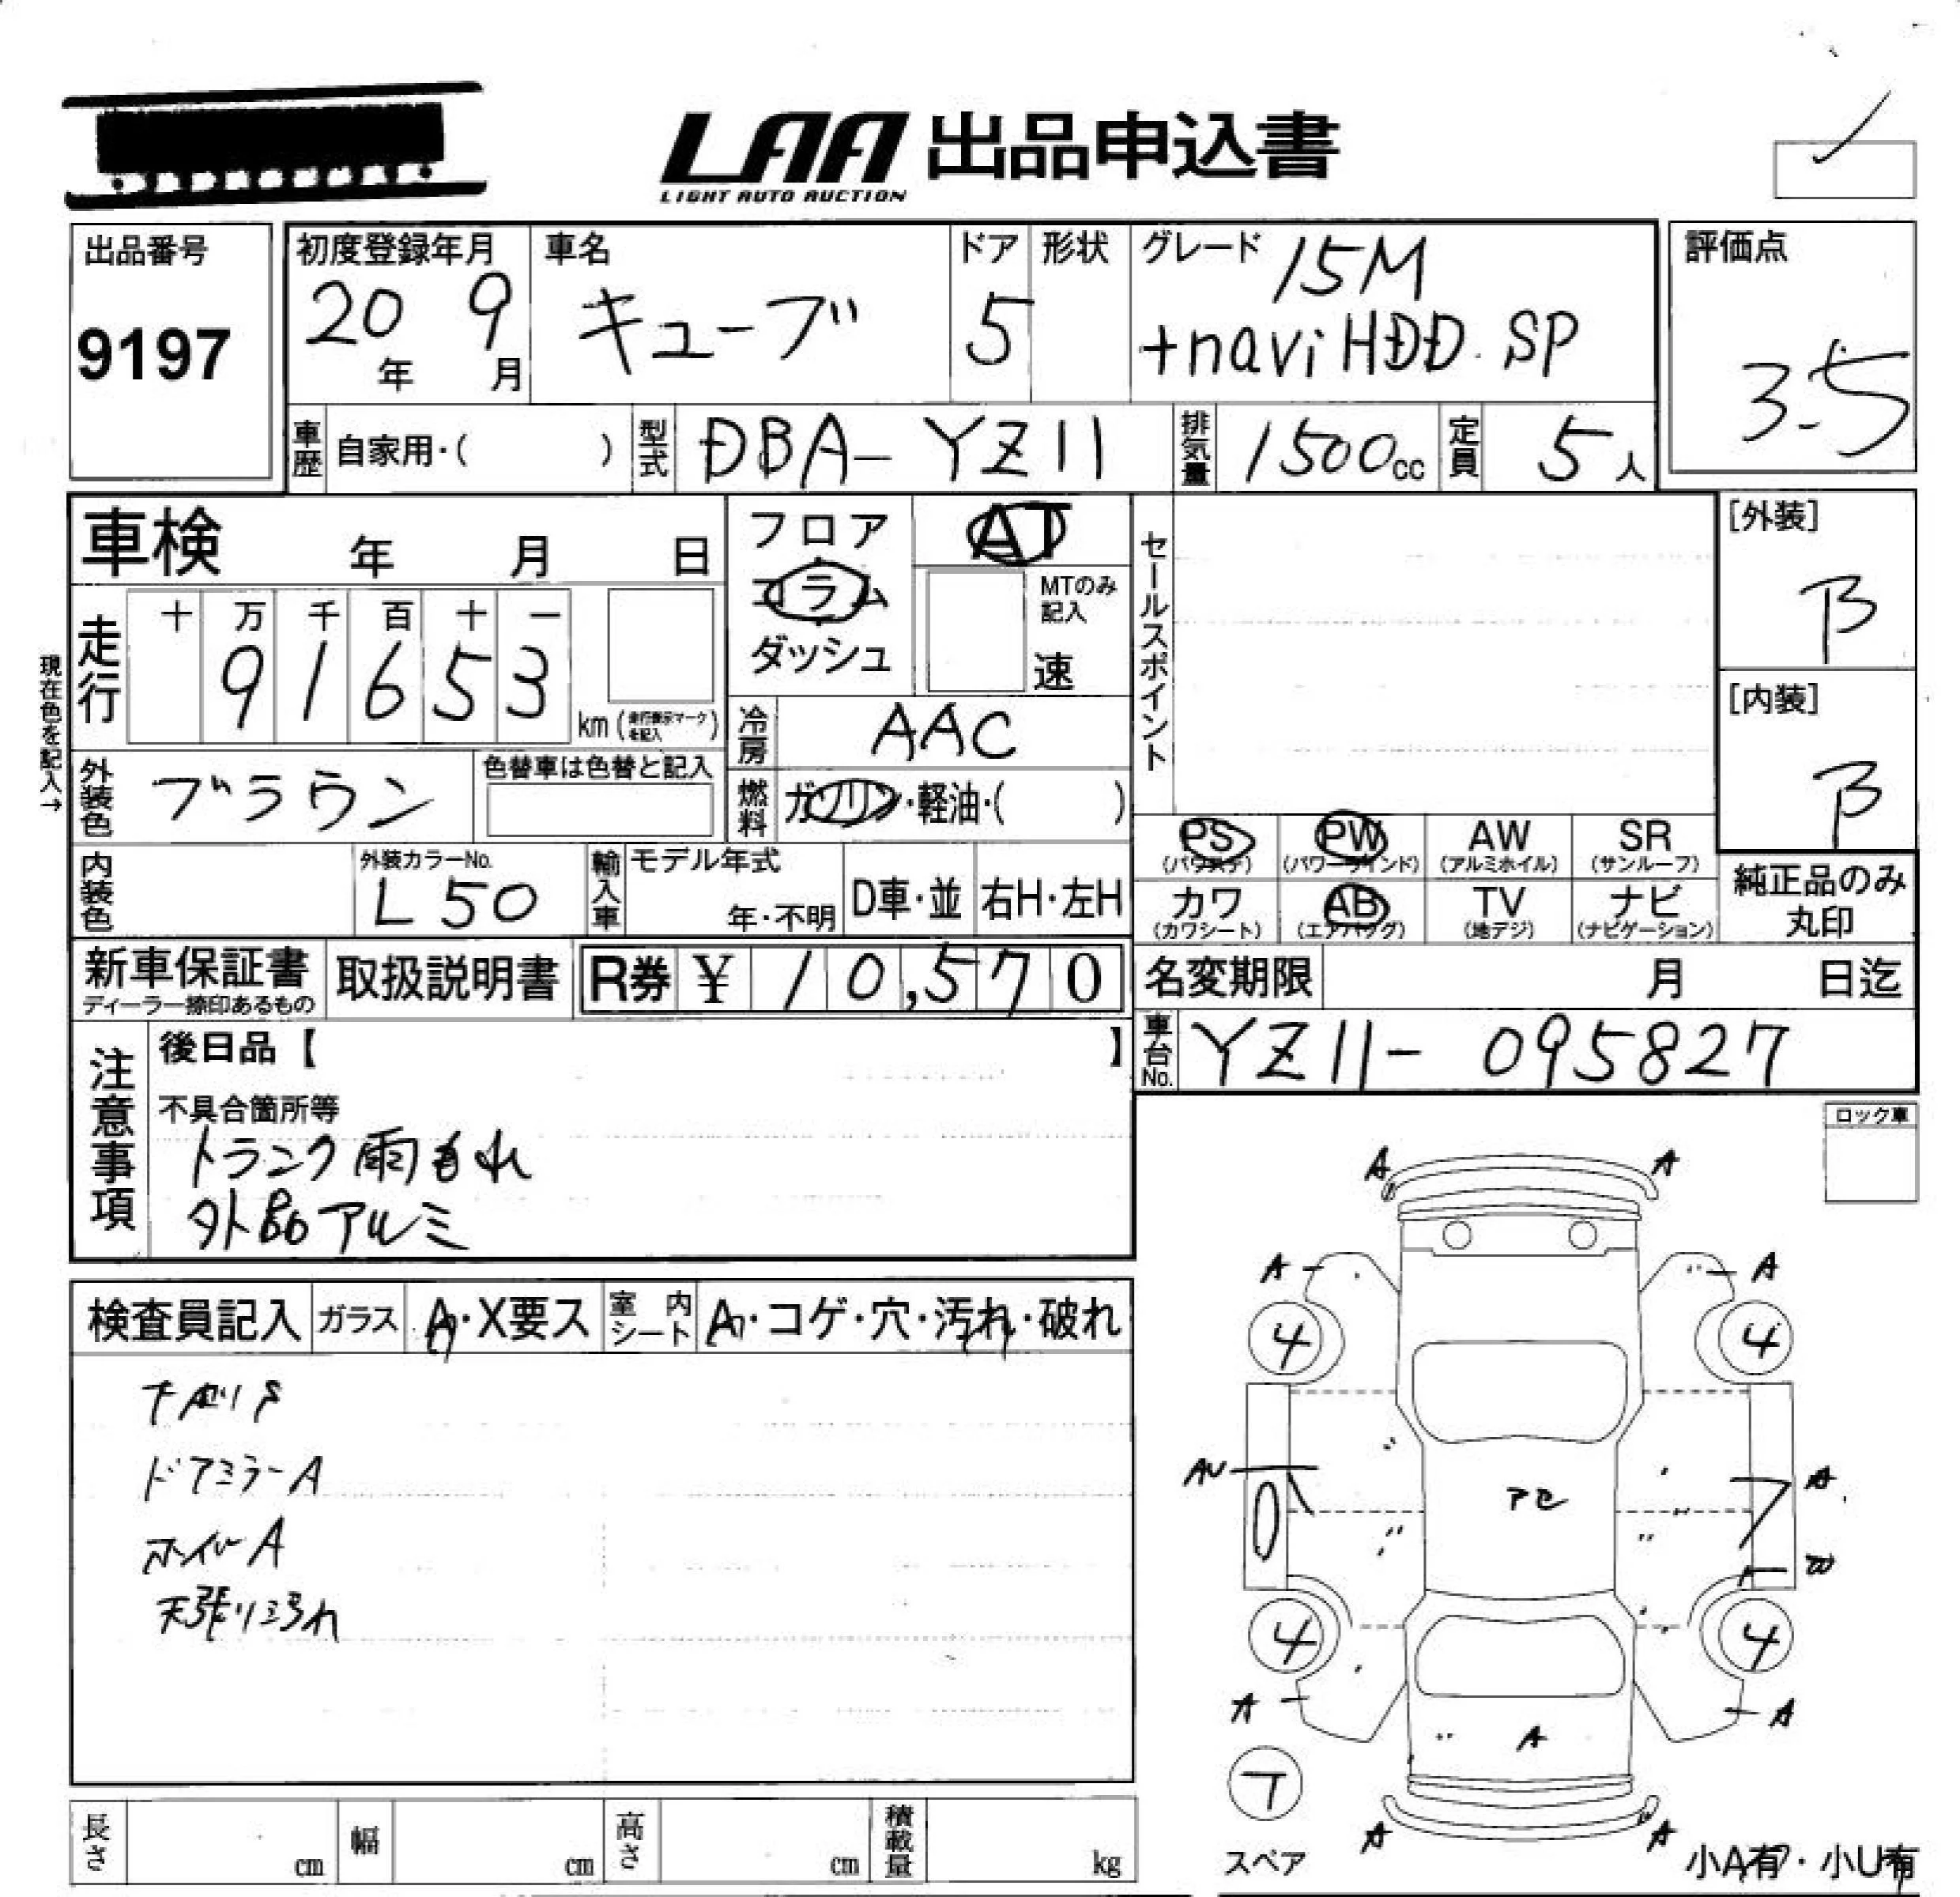 LAA 出品申込書
LIGHT AUTO AUCTION
出品番号
9197
初度登録年月
20年 9月
車名
キューブ
ドア
5
形状
グレード
15M
+navi HDD. SP
評価点
3.5
車歴 自家用・( )
型式 DBA-YZ11
排気量 1500cc
定員 5人
車検 年 月 日
フロア
コラム
ダッシュ
AT
MTのみ
記入
速
セールスポイント
[外装]
B
[内装]
B
現在色を記入→
走行
十 万 千 百 十 一
9 1 6 5 3
km
冷房 AAC
外装色 ブラウン
色替車は色替と記入
燃料 ガソリン・軽油・( )
PS
(パワステ)
PW
(パワーウインド)
AW
(アルミホイル)
SR
(サンルーフ)
内装色
外装カラーNo.
L50
輸入車
モデル年式
年・不明
D車・並
右H・左H
カワ
(カワシート)
AB
(エアバッグ)
TV
(地デジ)
ナビ
(ナビゲーション)
純正品のみ
丸印
新車保証書
ディーラー捺印あるもの
取扱説明書
R券 ¥ 10,570
名変期限 月 日迄
車台No. YZ11-095827
注意事項
後日品【 】
不具合箇所等
トランク雨もれ
外品アルミ
ロック車
検査員記入
ガラス
A・X要ス
室内シート
A・コゲ・穴・汚れ・破れ
ドアミラーA
ホイルA
天張りよごれ
A A
A A
4 4
AU
A
アセ
W
4 4
A A
A
A A
スペア
小A有・小U有
長さ cm
幅 cm
高さ cm
積載量 kg